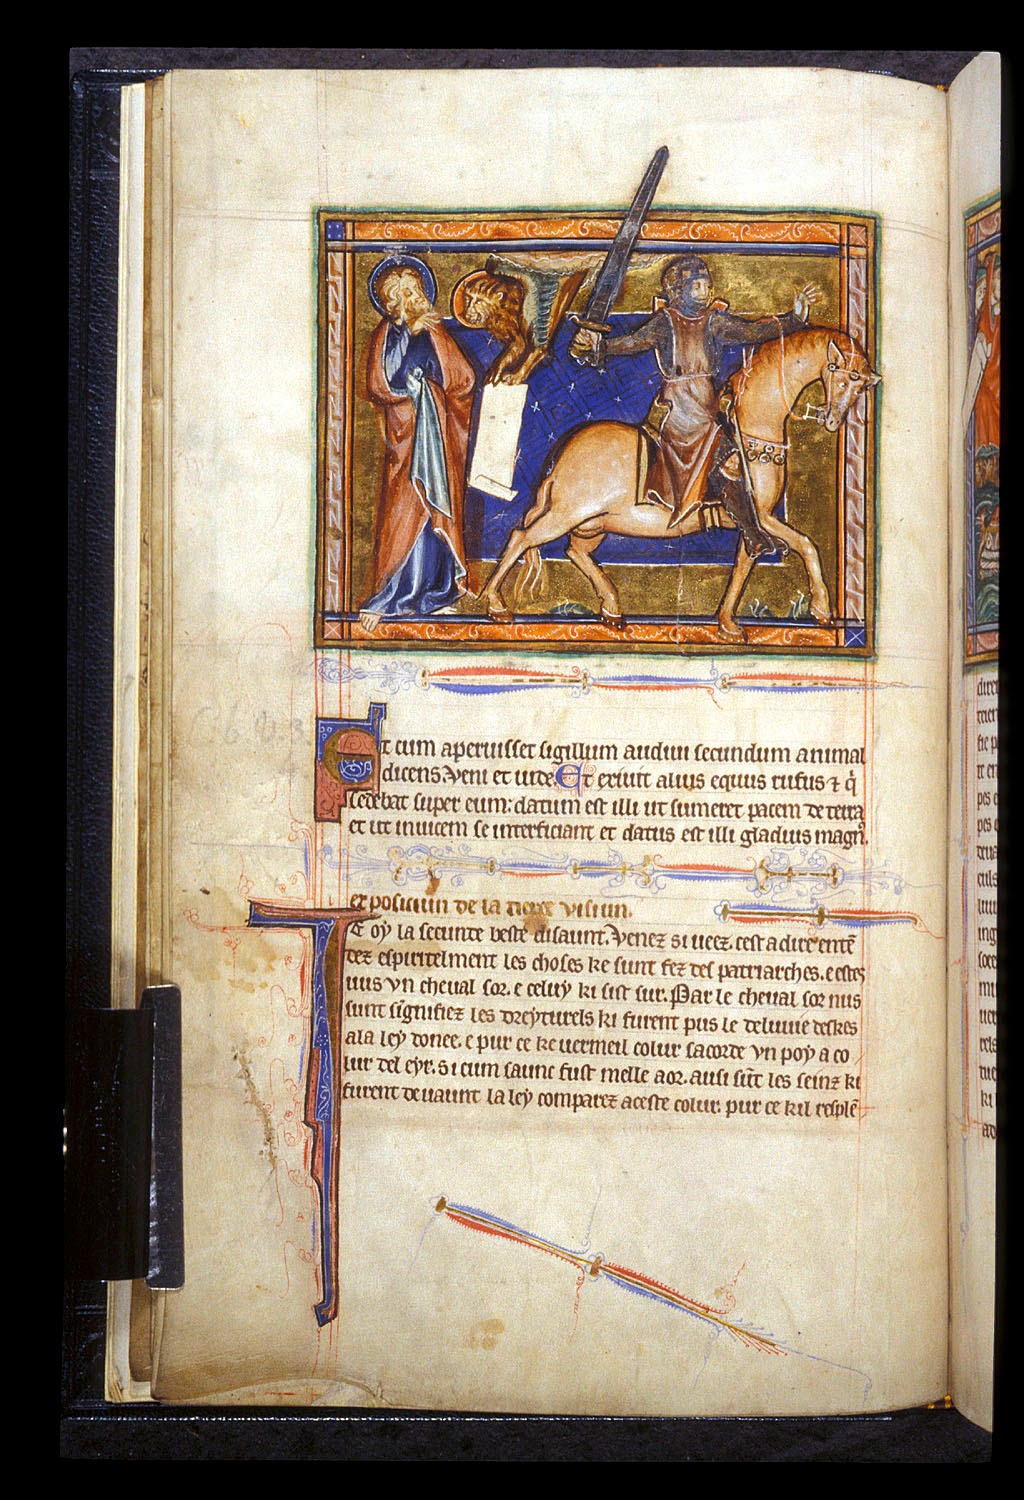 Et cum aperuisset sigillum audiui secundum animal
dicens Veni et uide Et exiuit alius equus rufus ⁊ q̇
sedebat super eum: datum est illi ut sumeret pacem de terra
et ut inuicem se interficiant et datus est illi gladius magnꝰ.
exposiciun de la visiun.
Ce oy la secunte beste disaunt. Venez si ueez. cest a dire entē
dez espiritelment les choses ke sunt fez des patriarches. e estes
uus vn cheual sor. e celuy ki sist sur. Par le cheual sor nus
sunt signifiez les dreyturels ki furent pus le deluuie deskes
a la ley donee. e pur ce ke uermeil colur sacorde vn poy a co
lur del eyr. si cum saunc fust melle a or. ausi sūt les seinz ki
furent deuaunt la ley comparez a ceste colur. pur ce kil resplē